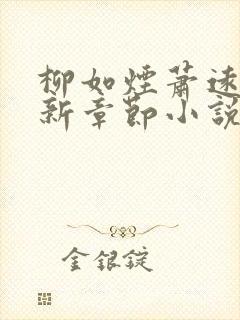 柳如煙蕭速
新章節小說
金銀錠